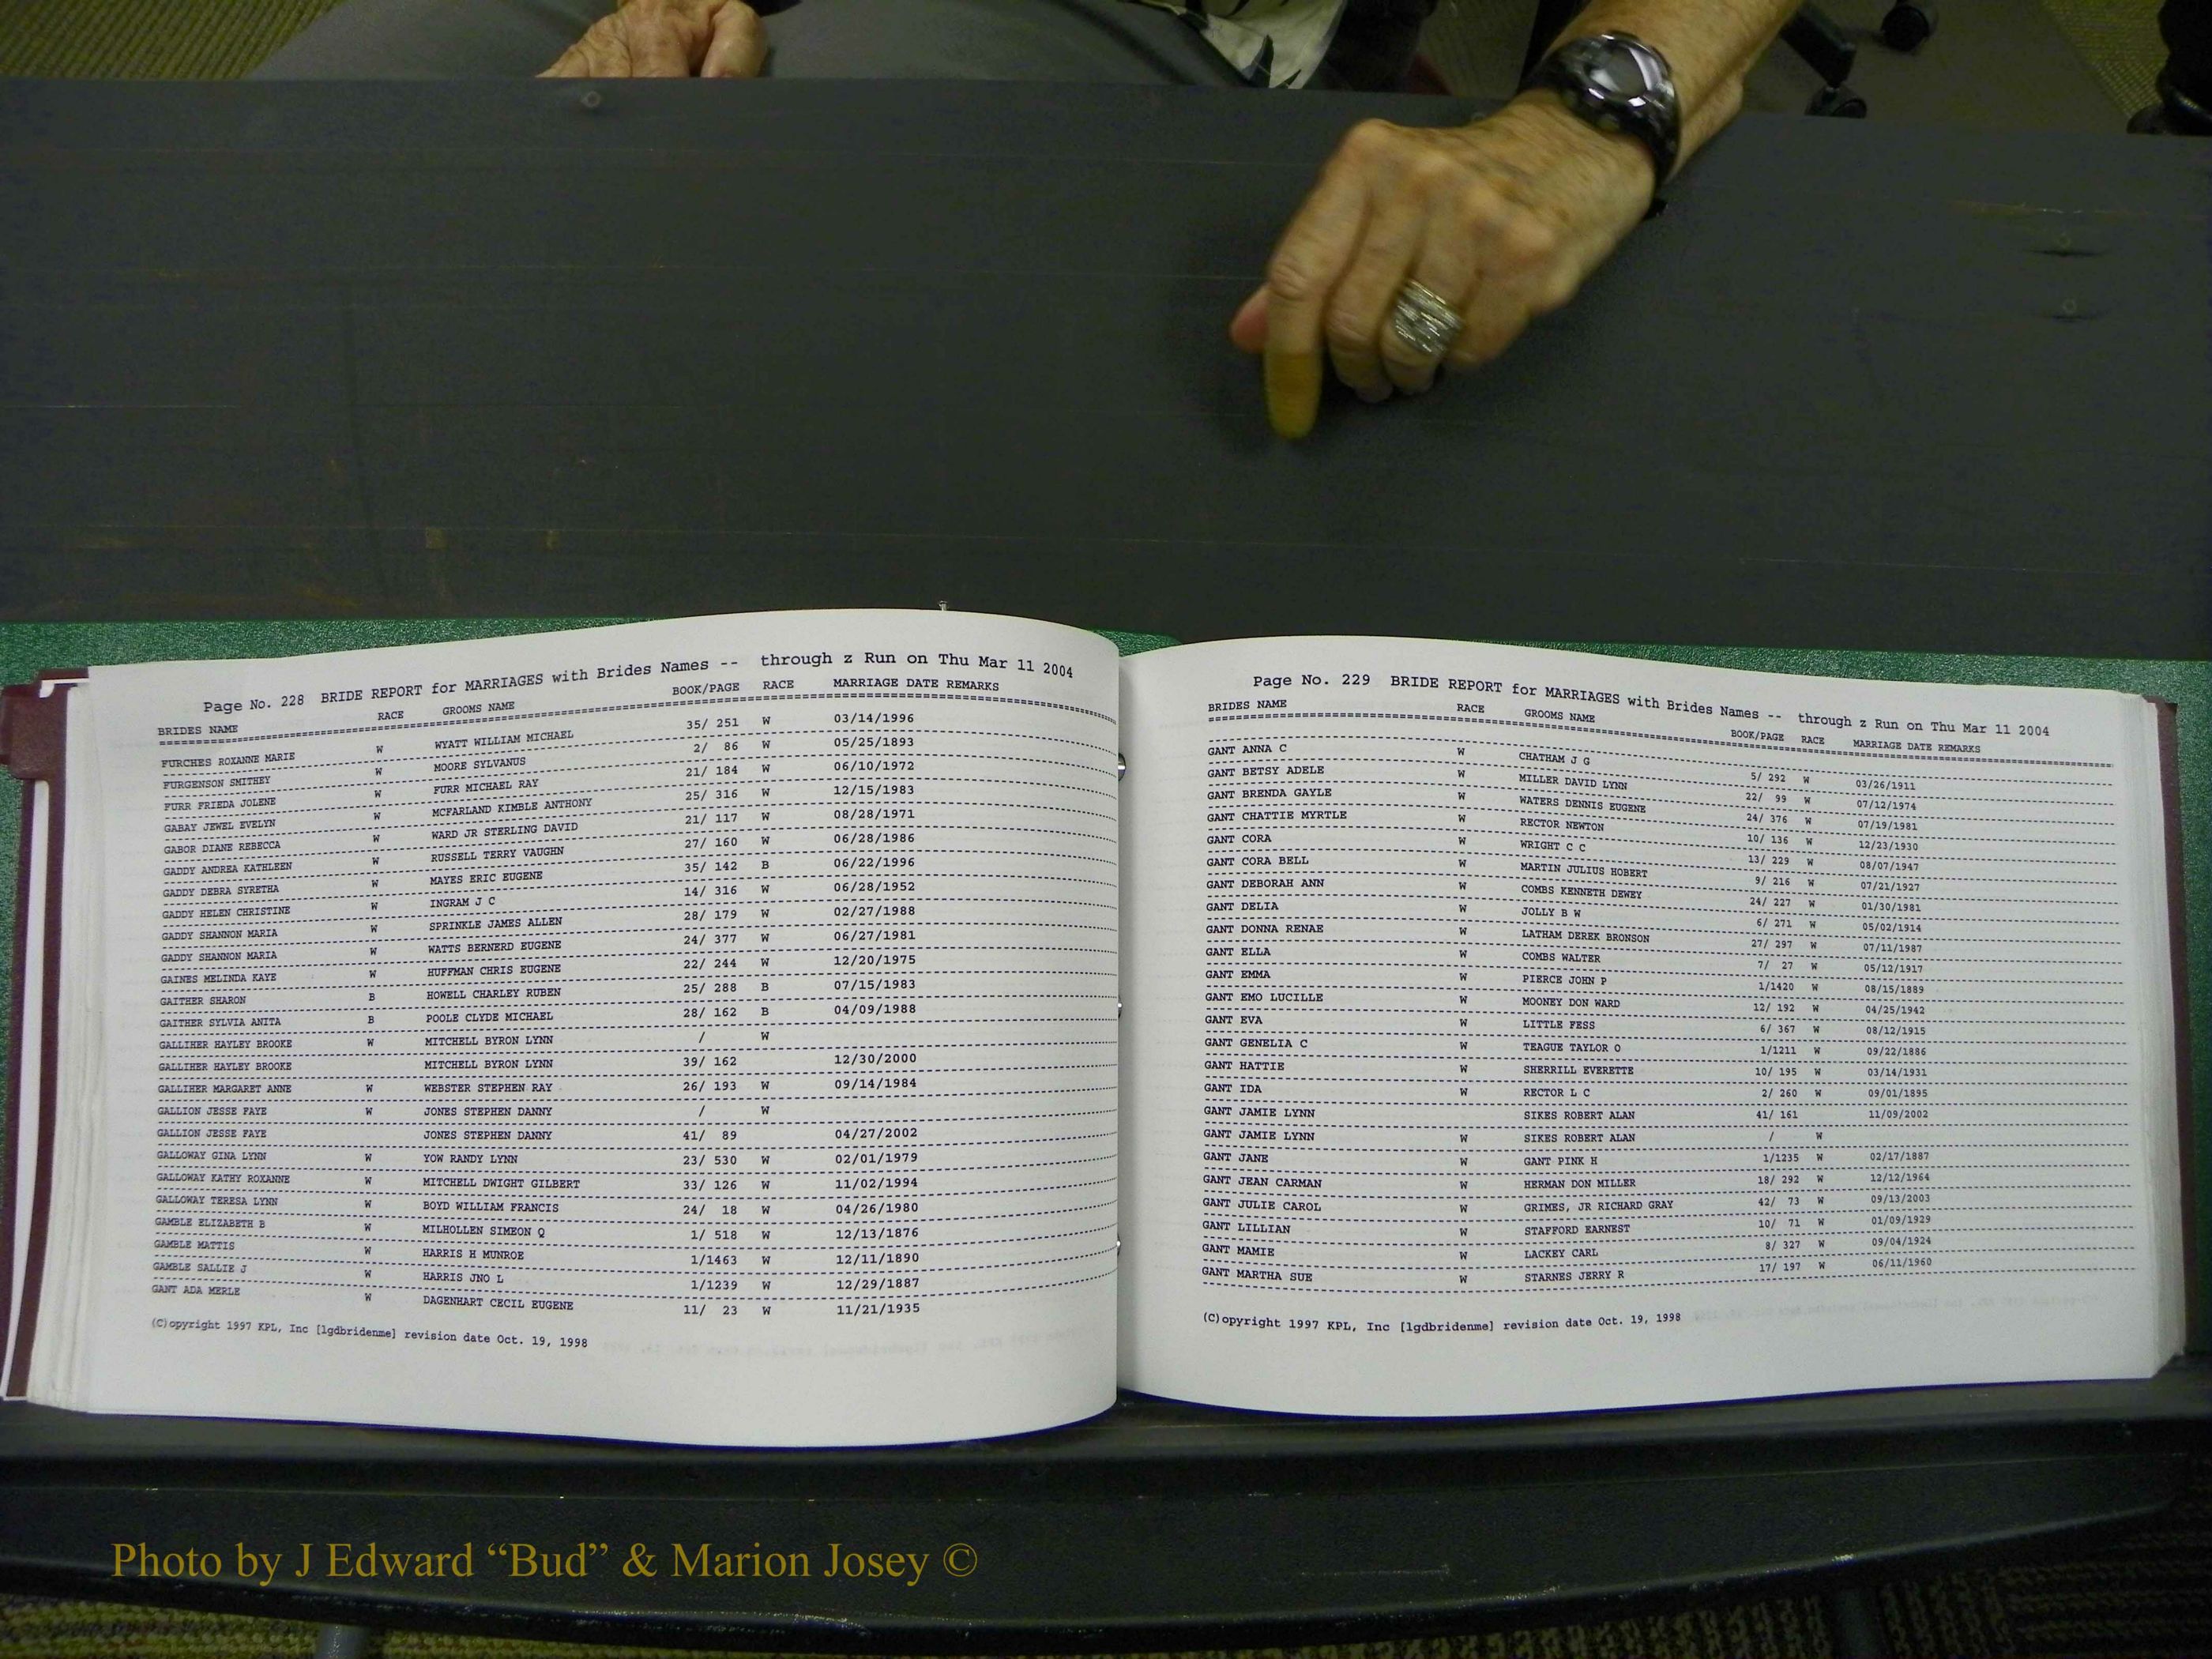 Page No. 228 BRIDE REPORT for MARRIAGES with Brides Names -- through z Run on Thu Mar 11 2004
BRIDES NAME RACE GROOMS NAME BOOK/PAGE RACE MARRIAGE DATE REMARKS
FURCHES ROXANNE MARIE W WYATT WILLIAM MICHAEL 35/ 251 W 03/14/1996
FURGENSON SMITHEY W MOORE SYLVANUS 2/ 86 W 05/25/1893
FURR FRIEDA JOLENE W FURR MICHAEL RAY 21/ 184 W 06/10/1972
GABAY JEWEL EVELYN W MCFARLAND KIMBLE ANTHONY 25/ 316 W 12/15/1983
GABOR DIANE REBECCA W WARD JR STERLING DAVID 21/ 117 W 08/28/1971
GADDY ANDREA KATHLEEN W RUSSELL TERRY VAUGHN 27/ 160 W 06/28/1986
GADDY DEBRA SYRETHA W MAYES ERIC EUGENE 35/ 142 B 06/22/1996
GADDY HELEN CHRISTINE W INGRAM J C 14/ 316 W 06/28/1952
GADDY SHANNON MARIA W SPRINKLE JAMES ALLEN 28/ 179 W 02/27/1988
GADDY SHANNON MARIA W WATTS BERNERD EUGENE 24/ 377 W 06/27/1981
GAINES MELINDA KAYE W HUFFMAN CHRIS EUGENE 22/ 244 W 12/20/1975
GAITHER SHARON B HOWELL CHARLEY RUBEN 25/ 288 B 07/15/1983
GAITHER SYLVIA ANITA B POOLE CLYDE MICHAEL 28/ 162 B 04/09/1988
GALLIHER HAYLEY BROOKE W MITCHELL BYRON LYNN / W
GALLIHER HAYLEY BROOKE MITCHELL BYRON LYNN 39/ 162 12/30/2000
GALLIHER MARGARET ANNE W WEBSTER STEPHEN RAY 26/ 193 W 09/14/1984
GALLION JESSE FAYE W JONES STEPHEN DANNY / W
GALLION JESSE FAYE JONES STEPHEN DANNY 41/ 89 04/27/2002
GALLOWAY GINA LYNN W YOW RANDY LYNN 23/ 530 W 02/01/1979
GALLOWAY KATHY ROXANNE W MITCHELL DWIGHT GILBERT 33/ 126 W 11/02/1994
GALLOWAY TERESA LYNN W BOYD WILLIAM FRANCIS 24/ 18 W 04/26/1980
GAMBLE ELIZABETH B W MILHOLLEN SIMEON Q 1/ 518 W 12/13/1876
GAMBLE MATTIS W HARRIS H MUNROE 1/1463 W 12/11/1890
GAMBLE SALLIE J W HARRIS JNO L 1/1239 W 12/29/1887
GANT ADA MERLE W DAGENHART CECIL EUGENE 11/ 23 W 11/21/1935
(C)opyright 1997 KPL, Inc [lgdbridenme] revision date Oct. 19, 1998
Page No. 229 BRIDE REPORT for MARRIAGES with Brides Names -- through z Run on Thu Mar 11 2004
BRIDES NAME RACE GROOMS NAME BOOK/PAGE RACE MARRIAGE DATE REMARKS
GANT ANNA C W CHATHAM J G 5/ 292 W 03/26/1911
GANT BETSY ADELE W MILLER DAVID LYNN 22/ 99 W 07/12/1974
GANT BRENDA GAYLE W WATERS DENNIS EUGENE 24/ 376 W 07/19/1981
GANT CHATTIE MYRTLE W RECTOR NEWTON 10/ 136 W 12/23/1930
GANT CORA W WRIGHT C C 13/ 229 W 08/07/1947
GANT CORA BELL W MARTIN JULIUS HOBERT 9/ 216 W 07/21/1927
GANT DEBORAH ANN W COMBS KENNETH DEWEY 24/ 227 W 01/30/1981
GANT DELIA W JOLLY B W 6/ 271 W 05/02/1914
GANT DONNA RENAE W LATHAM DEREK BRONSON 27/ 297 W 07/11/1987
GANT ELLA W COMBS WALTER 7/ 27 W 05/12/1917
GANT EMMA W PIERCE JOHN P 1/1420 W 08/15/1889
GANT EMO LUCILLE W MOONEY DON WARD 12/ 192 W 04/25/1942
GANT EVA W LITTLE FESS 6/ 367 W 08/12/1915
GANT GENELIA C W TEAGUE TAYLOR O 1/1211 W 09/22/1886
GANT HATTIE W SHERRILL EVERETTE 10/ 195 W 03/14/1931
GANT IDA W RECTOR L C 2/ 260 W 09/01/1895
GANT JAMIE LYNN SIKES ROBERT ALAN 41/ 161 11/09/2002
GANT JAMIE LYNN W SIKES ROBERT ALAN / W
GANT JANE W GANT PINK H 1/1235 W 02/17/1887
GANT JEAN CARMAN W HERMAN DON MILLER 18/ 292 W 12/12/1964
GANT JULIE CAROL W GRIMES, JR RICHARD GRAY 42/ 73 W 09/13/2003
GANT LILLIAN W STAFFORD EARNEST 10/ 71 W 01/09/1929
GANT MAMIE W LACKEY CARL 8/ 327 W 09/04/1924
GANT MARTHA SUE W STARNES JERRY R 17/ 197 W 06/11/1960
(C)opyright 1997 KPL, Inc [lgdbridenme] revision date Oct. 19, 1998
Photo by J Edward “Bud” & Marion Josey ©